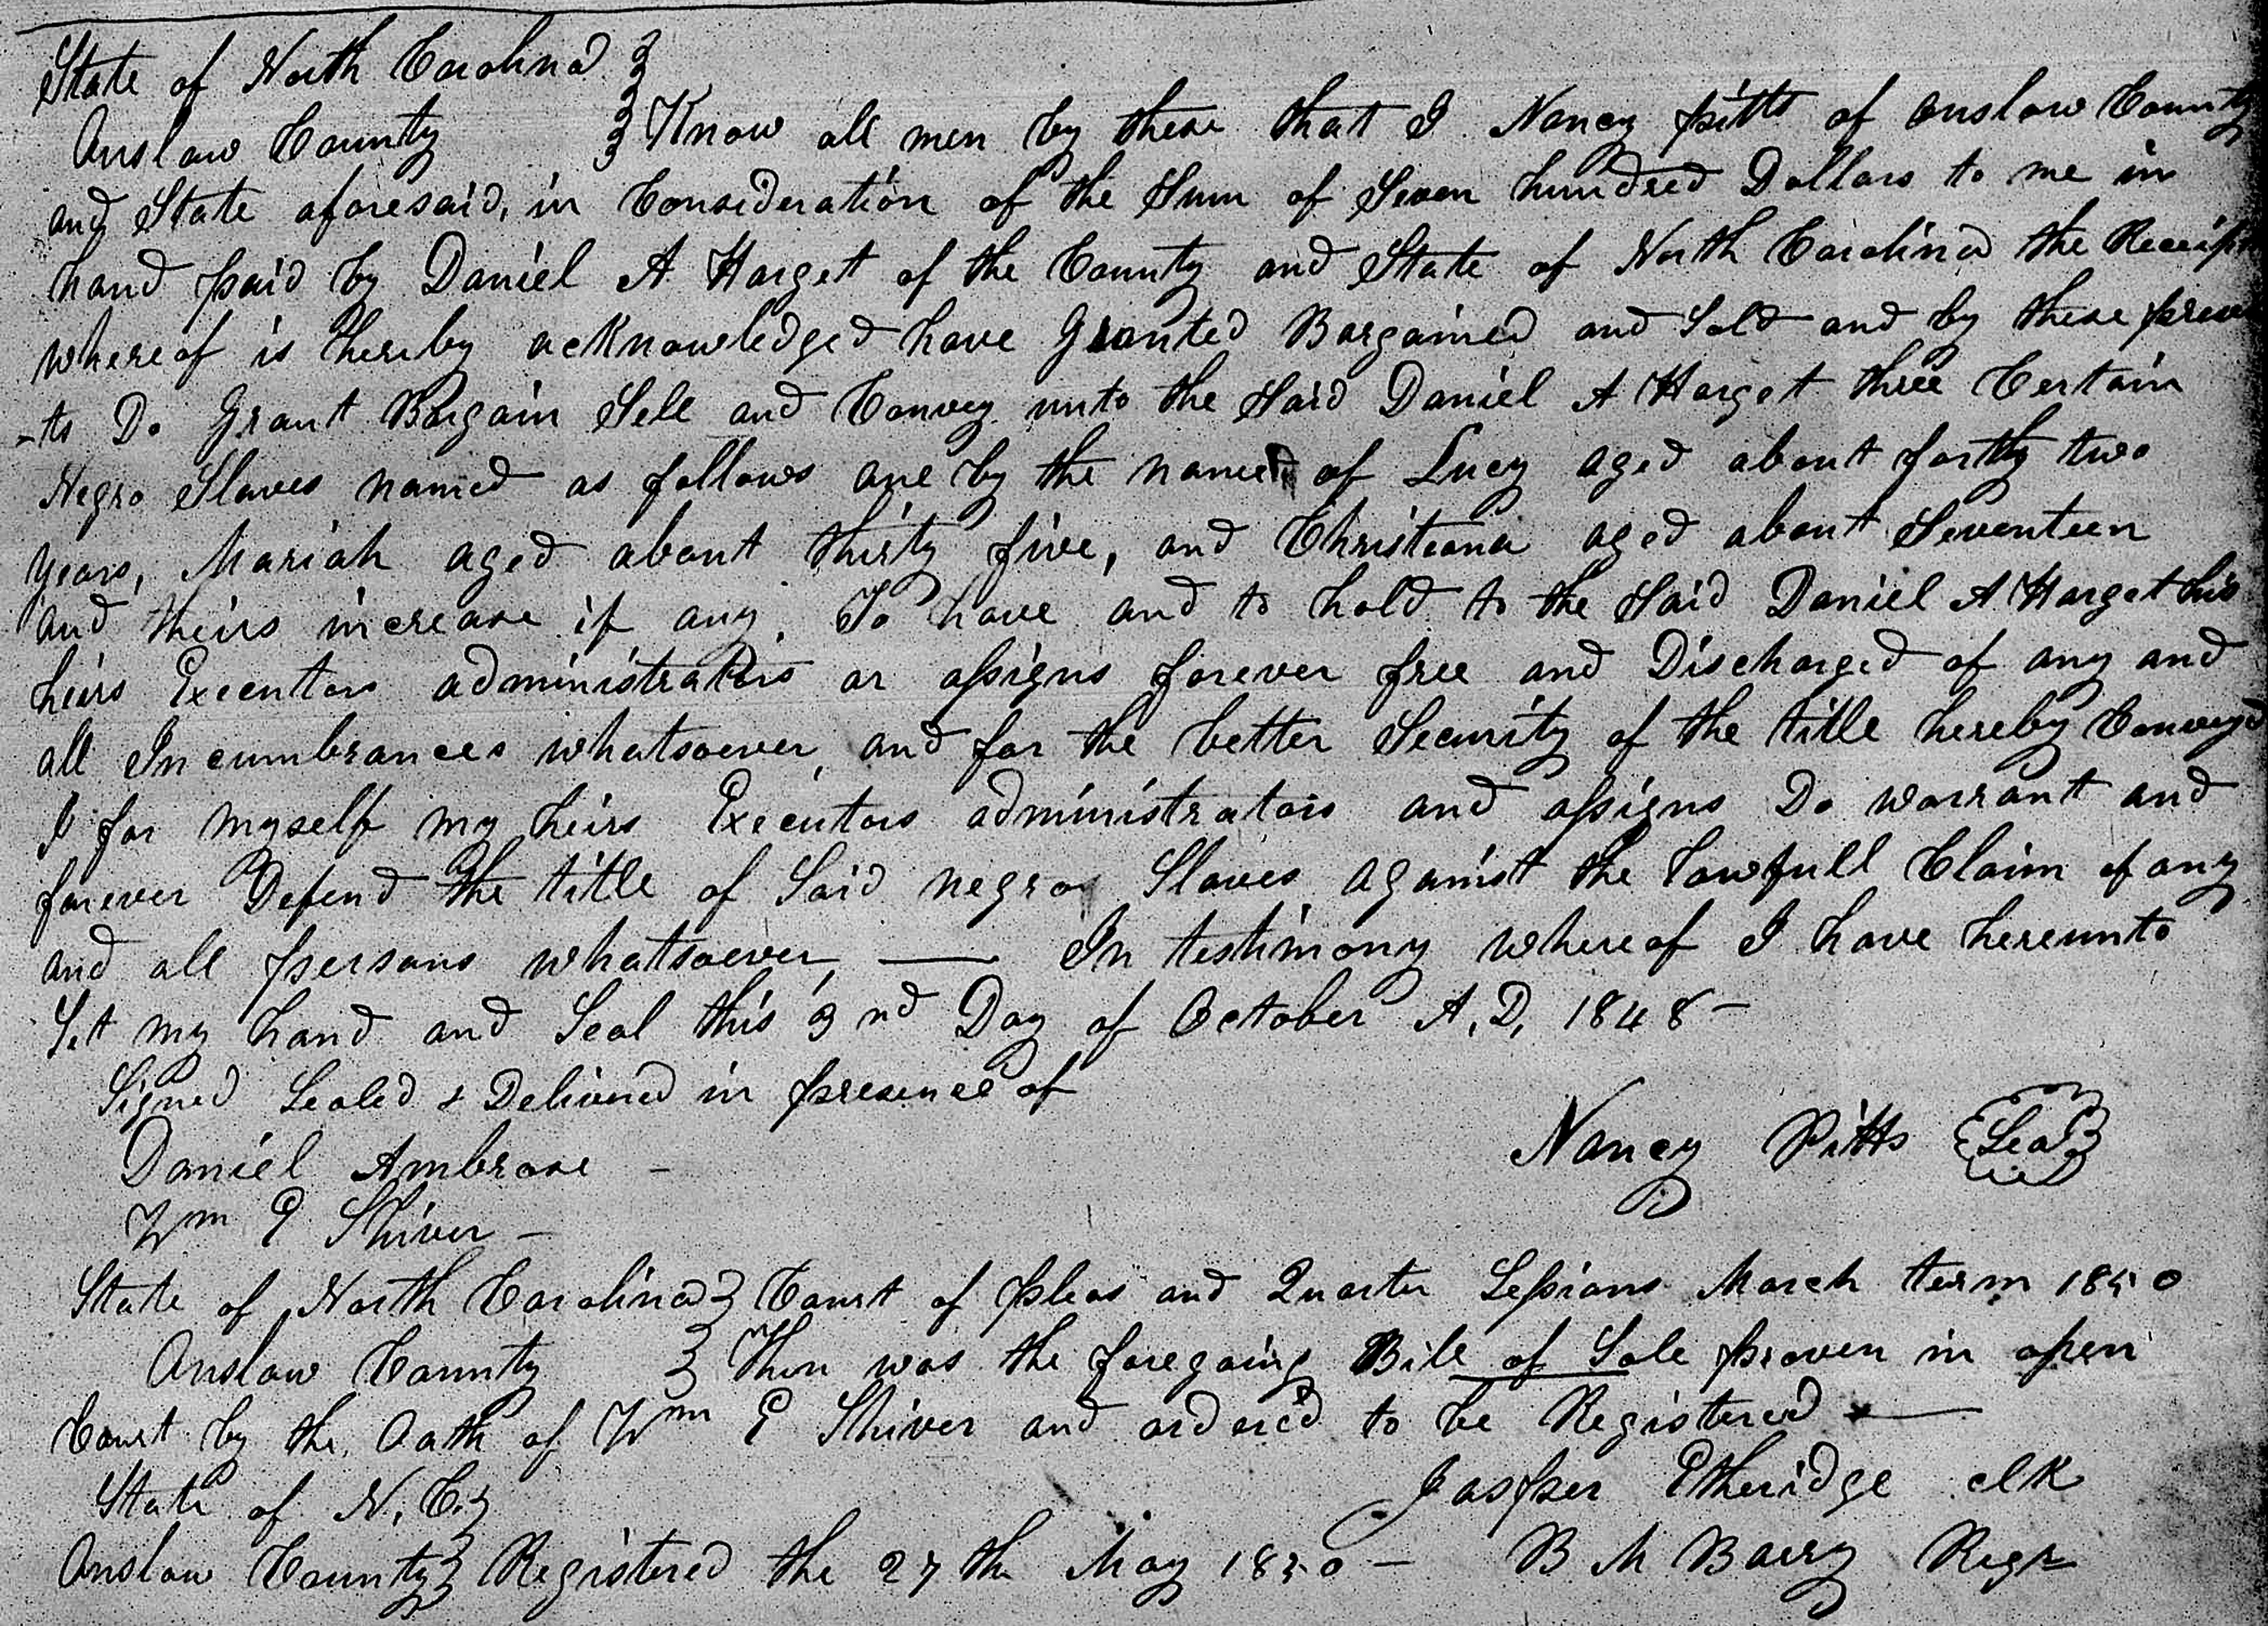 State of North Carolina
Onslow County Know all men by these that I Nancy pitts of Onslow County
and State aforesaid, in Consideration of the Sum of Seven hundred Dollars to me in
hand paid by Daniel A Harget of the County and State of North Carolina the Receipt
whereof is hereby acknowledged have Granted Bargained and Sold and by these presen
-ts Do Grant Bargain Sell and Convey unto the Said Daniel A Harget three Certain
Negro Slaves named as follows one by the name of Lucy aged about forthy two
years, Mariah aged about thirty five, and Christiana aged about Seventeen
and theirs increase if any. To have and to hold to the Said Daniel A Harget his
heirs Executors administrators or assigns forever free and Discharged of any and
all Incumbrances whatsoever, and for the better Security of the title hereby Conveyd
I for myself my heirs Executors administrators and assigns Do warrant and
forever Defend the title of Said negro Slaves against the Lawfull Claim of any
and all persons whatsoever, — In testimony whereof I have hereunto
Set my hand and Seal this 3 nd Day of October A, D, 1848 –
Signed Sealed & Delivered in presence of
Daniel Ambrose –
Nancy Pitts Seal
Wm E Shiver –
State of North Carolina Court of pleas and Quarter Sessions March term 1850
Onslow County Then was the foregoing Bill of Sale proven in open
Court by the Oath of Wm E Shiver and ordered to be Registered —
Jasper Etheridge clk
State of N, C,
Onslow County Registered the 27 th May 1850 – B M Barry Regr